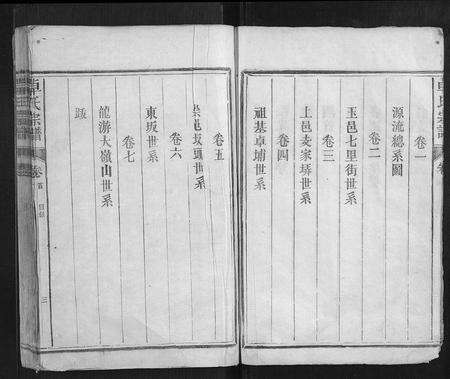 卷一
源流總系圖
卷二
玉邑七里街世系
卷三
上邑麦家塝世系
卷四
祖基卓埔世系
卷五
坂頭世系
卷六
東坂世系
卷七
龍游大嶺山世系
跋
氏宗譜
卷首
目錄
三